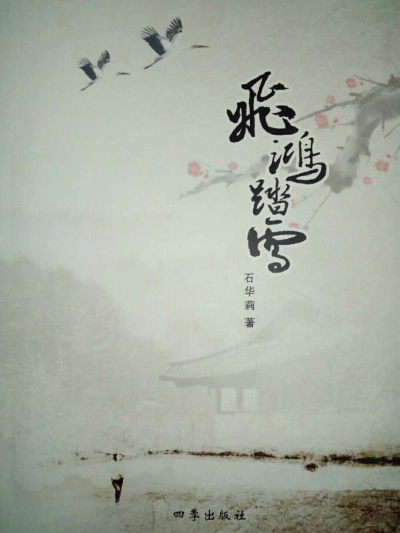 飛鴻踏雪
石华莉 著
四季出版社